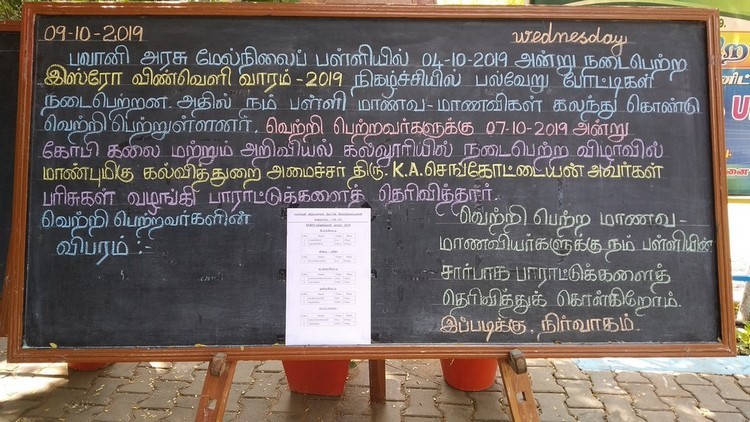 09-10-2019
wednesday
பவானி அரசு மேல்நிலைப் பள்ளியில் 04-10-2019 அன்று நடைபெற்ற
இஸ்ரோ விண்வெளி வாரம் - 2019 நிகழ்ச்சியில் பல்வேறு போட்டிகள்
நடைபெற்றன. அதில் நம் பள்ளி மாணவ - மாணவிகள் கலந்து கொண்டு
வெற்றி பெற்றுள்ளனர். வெற்றி பெற்றவர்களுக்கு 07-10-2019 அன்று
கோபி கலை மற்றும் அறிவியல் கல்லூரியில் நடைபெற்ற விழாவில்
மாண்புமிகு கல்வித்துறை அமைச்சர் திரு. K.A.செங்கோட்டையன் அவர்கள்
பரிசுகள் வழங்கி பாராட்டுக்களைத் தெரிவித்தார்.
வெற்றி பெற்றவர்களின்
விபரம் :-
வெற்றி பெற்ற மாணவ -
மாணவியர்களுக்கு நம் பள்ளியின்
சார்பாக பாராட்டுக்களைத்
தெரிவித்துக் கொள்கிறோம்.
இப்படிக்கு, நிர்வாகம்.